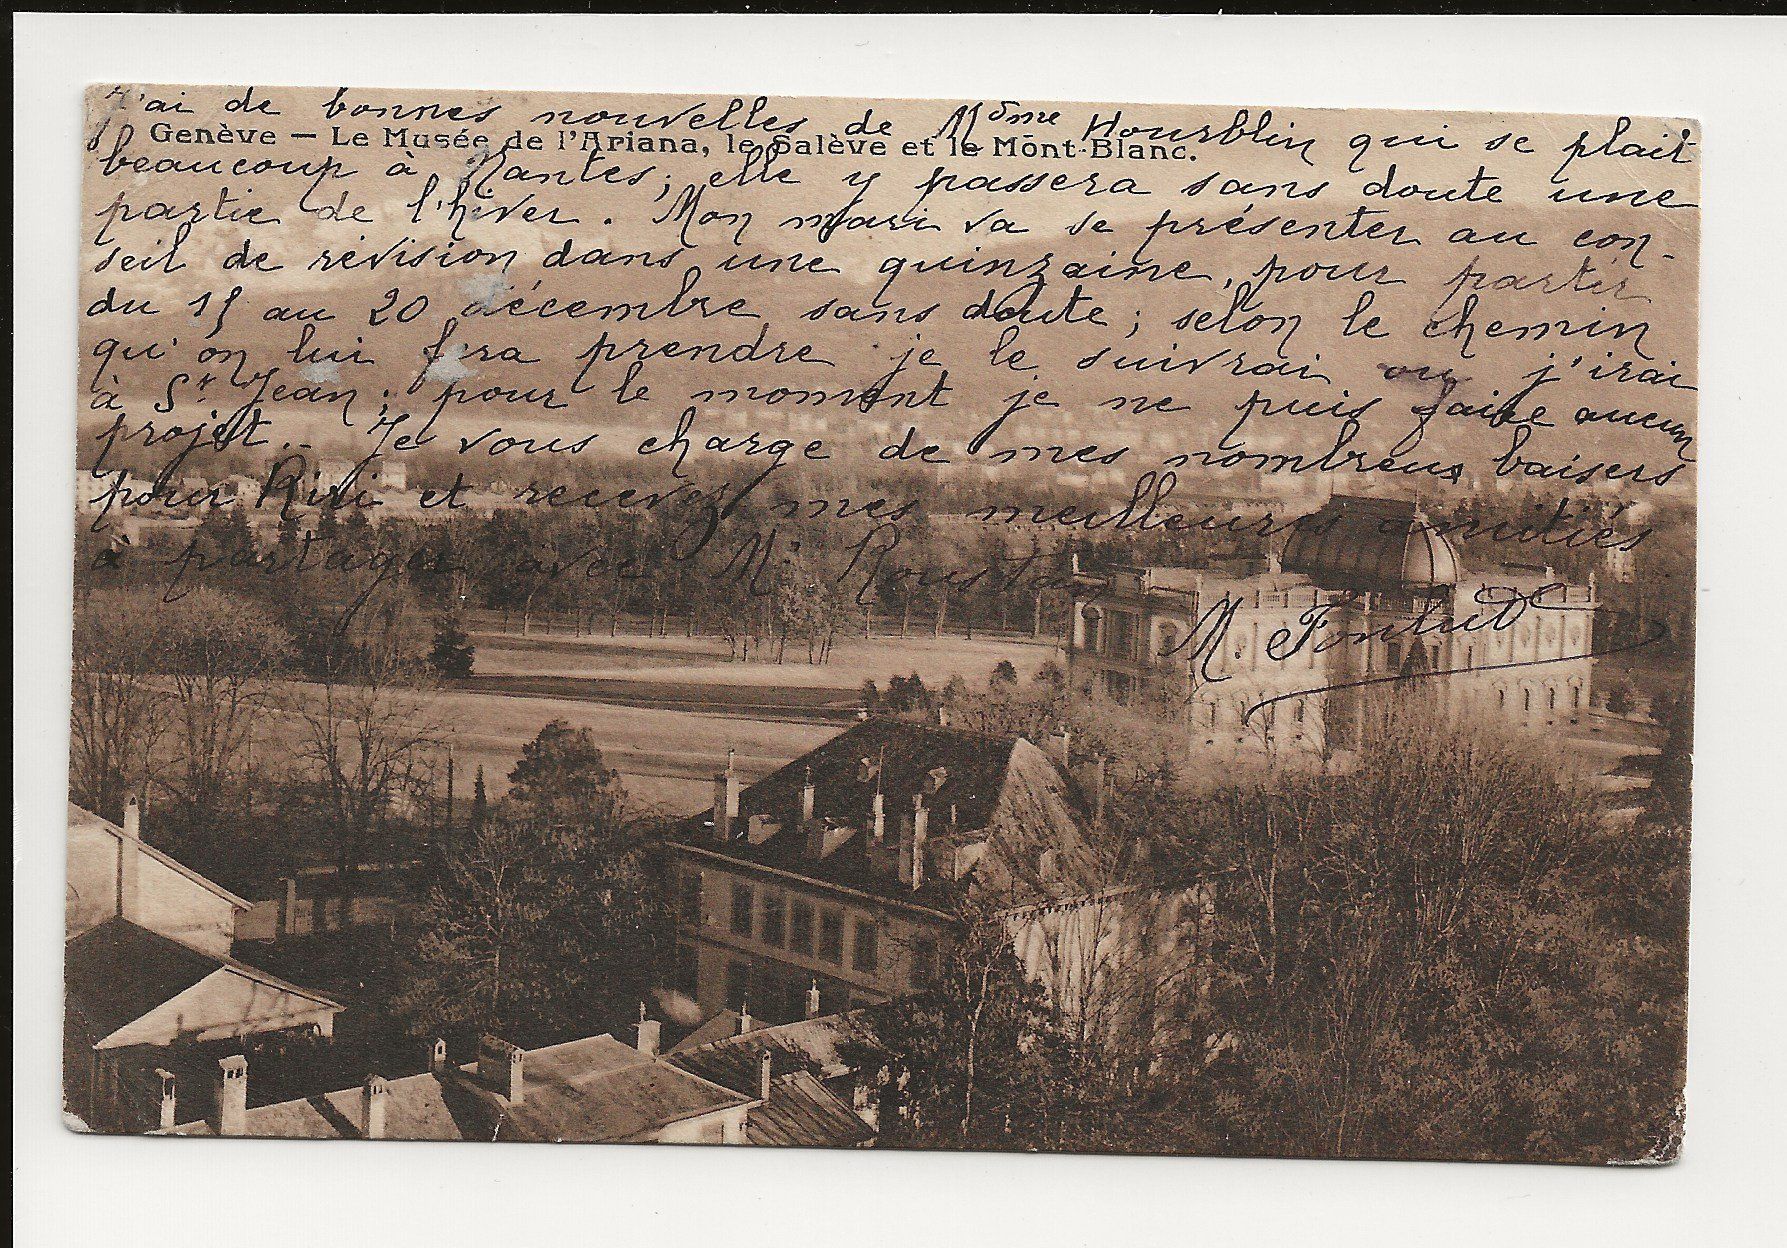 J'ai de bonnes nouvelles de Mme Hourblin qui se plait
Genève — Le Musée de l'Ariana, le Salève et le Mont-Blanc.
beaucoup à Nantes; elle y passera sans doute une
partie de l'hiver. Mon mari va se présenter au con-
seil de révision dans une quinzaine, pour partir
du 15 au 20 décembre sans doute; selon le chemin
qu'on lui fera prendre je le suivrai ou j'irai
à St Jean; pour le moment je ne puis faire aucun
projet. Je vous charge de mes nombreux baisers
pour Riri et recevez mes meilleures amitiés
à partager avec Mr Roustan
M.